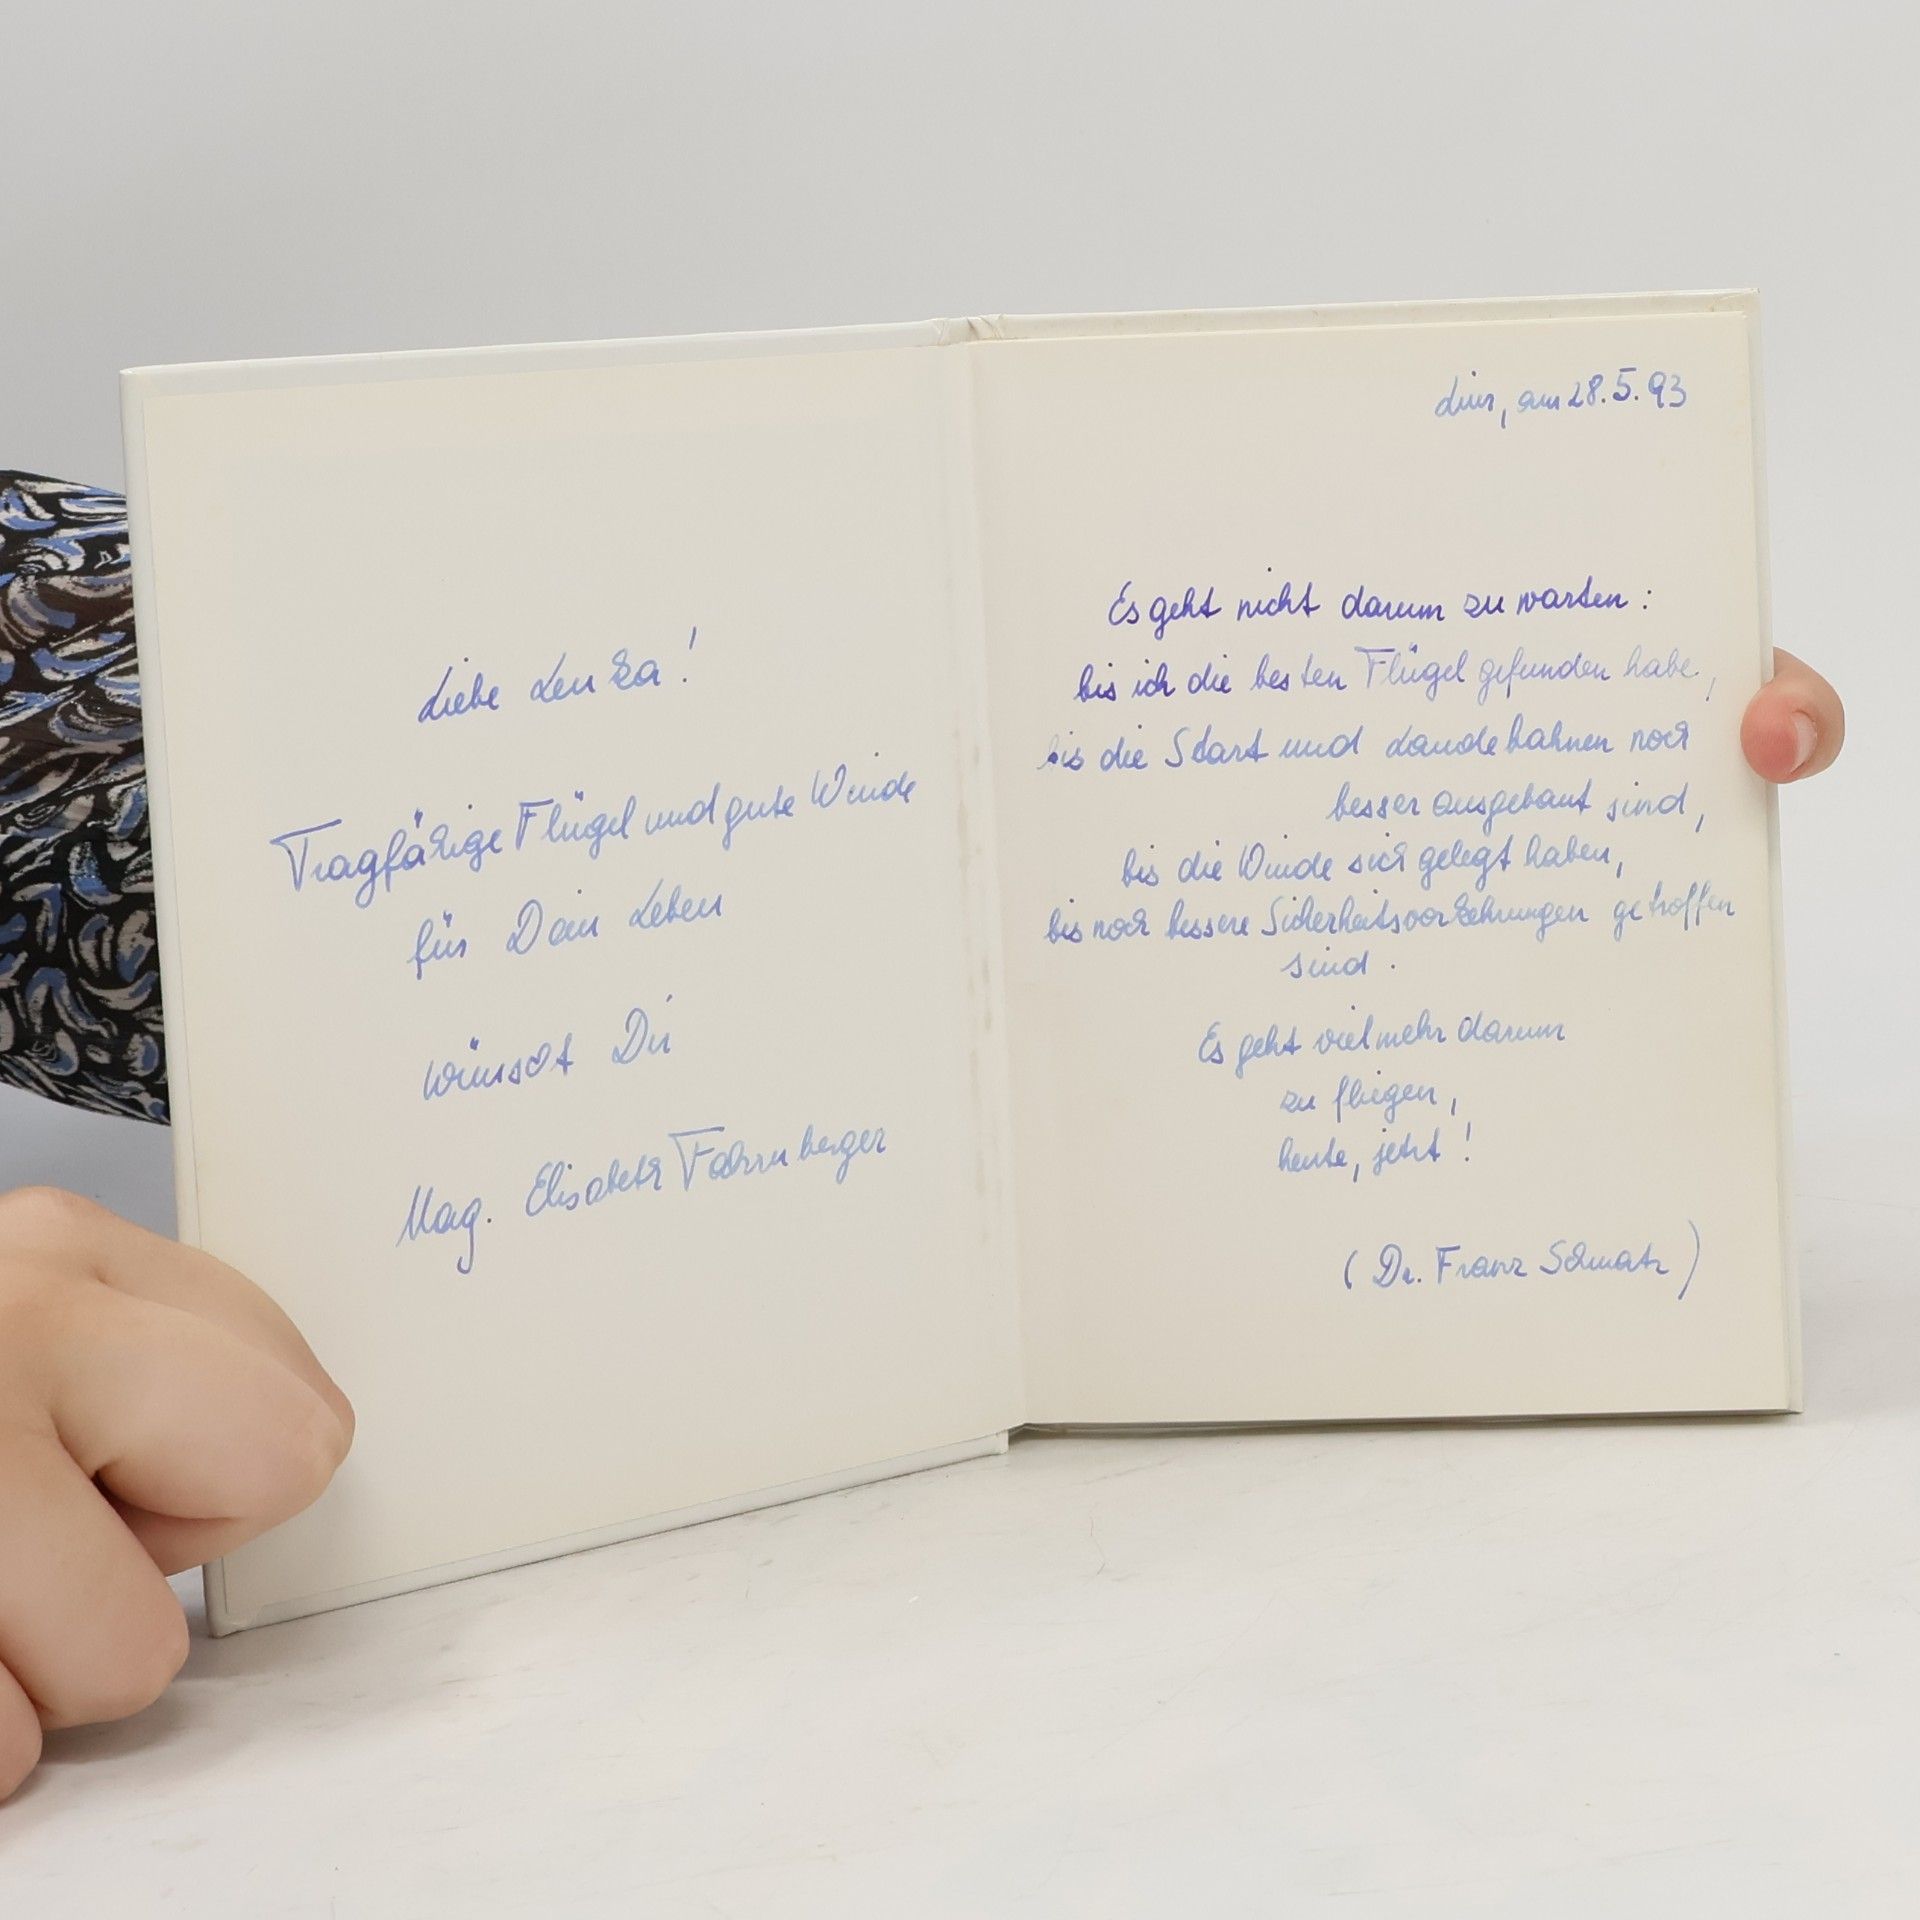 Liebe Lenka!
Tragfähige Flügel und gute Winde
für Dein Leben
wünscht Dir
Mag. Elisabeth Fahrnberger
Linz, am 28.5.93
Es geht nicht darum zu warten:
bis ich die besten Flügel gefunden habe,
bis die Start und Landebahnen noch
besser ausgebaut sind,
bis die Winde sich gelegt haben,
bis noch bessere Sicherheitsvorkehrungen getroffen
sind.
Es geht vielmehr darum
zu fliegen,
heute, jetzt!
(Dr. Franz Schmatz)